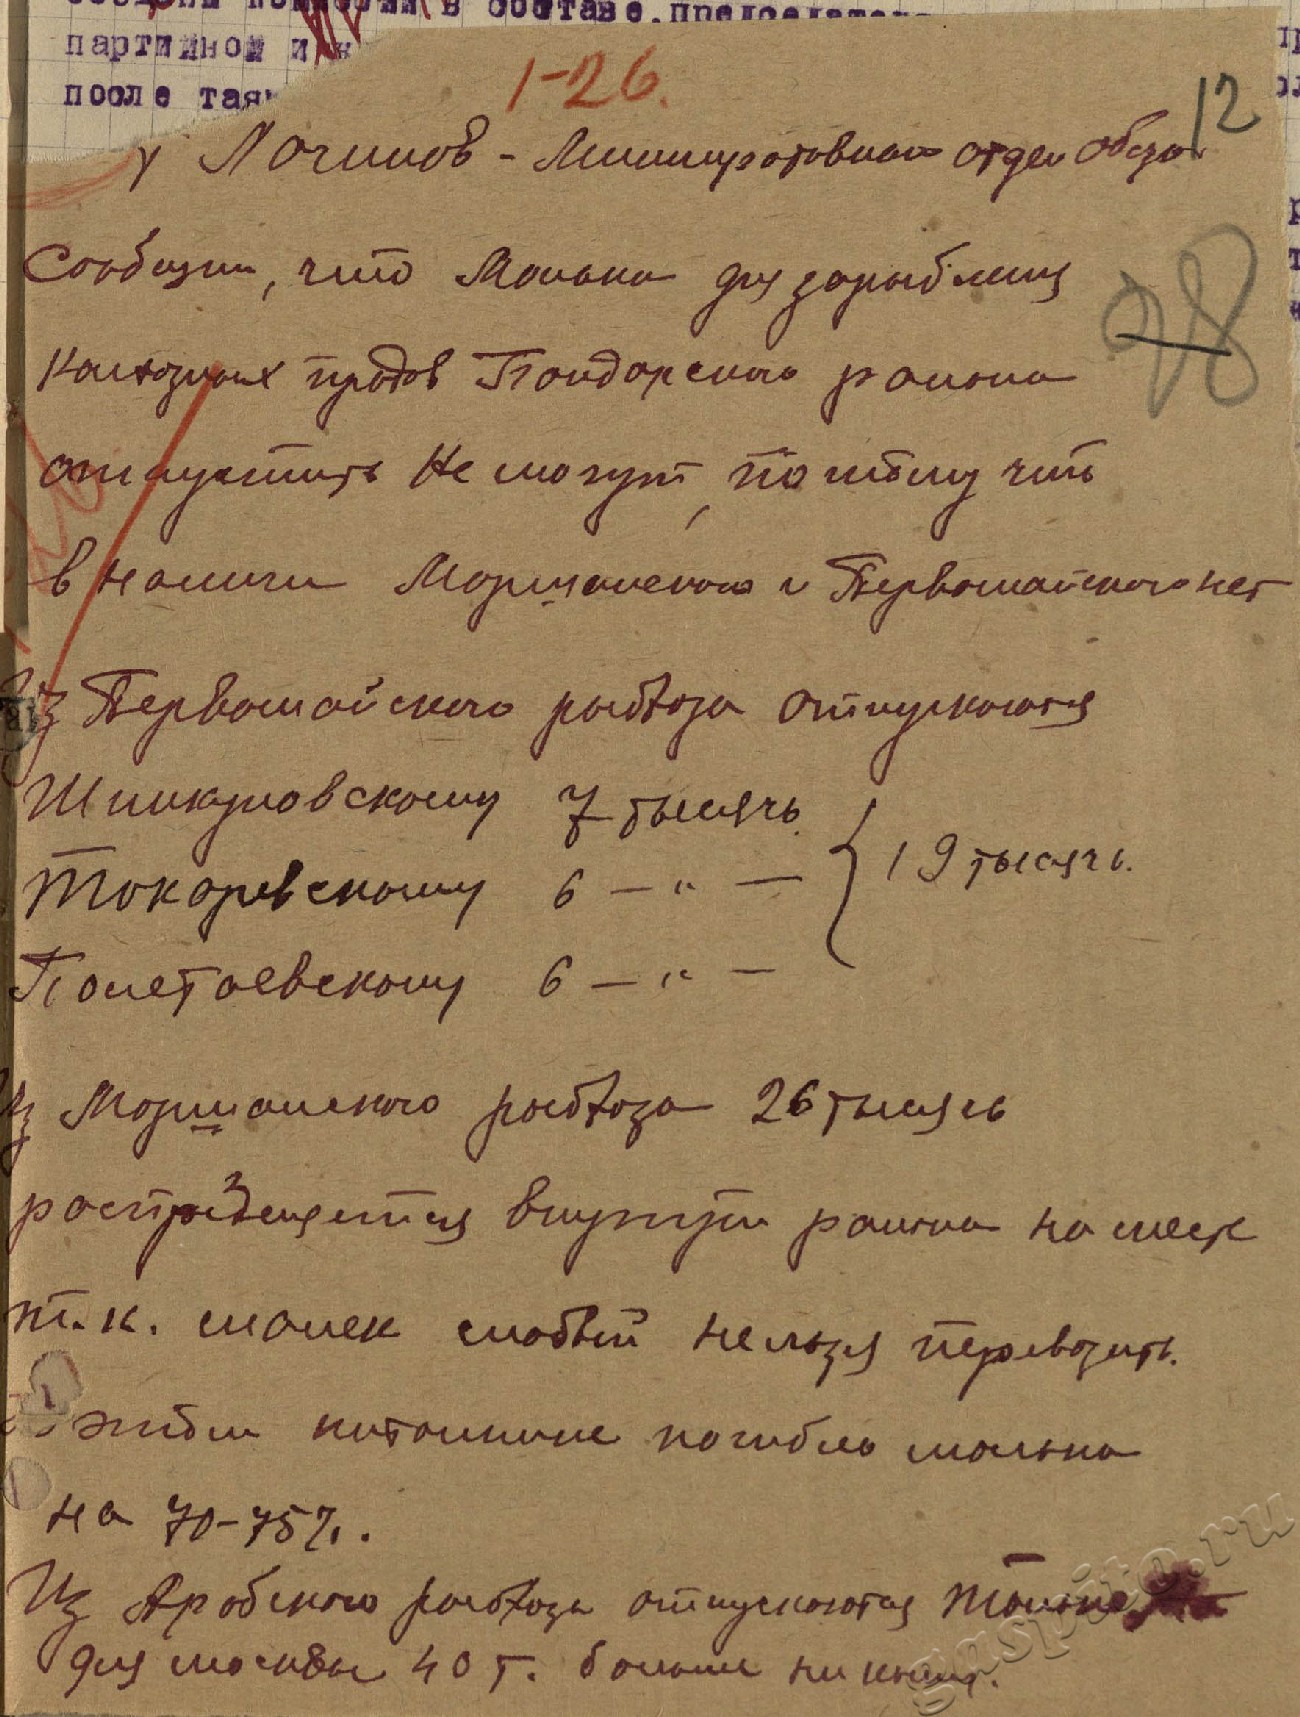 в составе, председателя
партийной и
после таян
1-26.
12
Логинов - Мелиоративный отдел Облзо
28
Сообщил, что Малька для зарыбления
колхозных прудов Бондарского района
отпустить не могут, потому что
в наличи Моршанского и Первомайского нет
Из Первомайского рыбхоза отпускаются
Шпикуловскому 7 тысячь
Токаревскому 6 — " —
Полетаевскому 6 — " —
19 тысячь.
Из Моршанского рыбхоза 26 тысячь
распределяется внутри района на месте
т.к. малек слабый нельзя перевозить.
В этом питомнике погибло малька
на 70-75%.
Из Арабского рыбхоза отпускаются только
для москвы 40 т. больше никому.
gaspito.ru